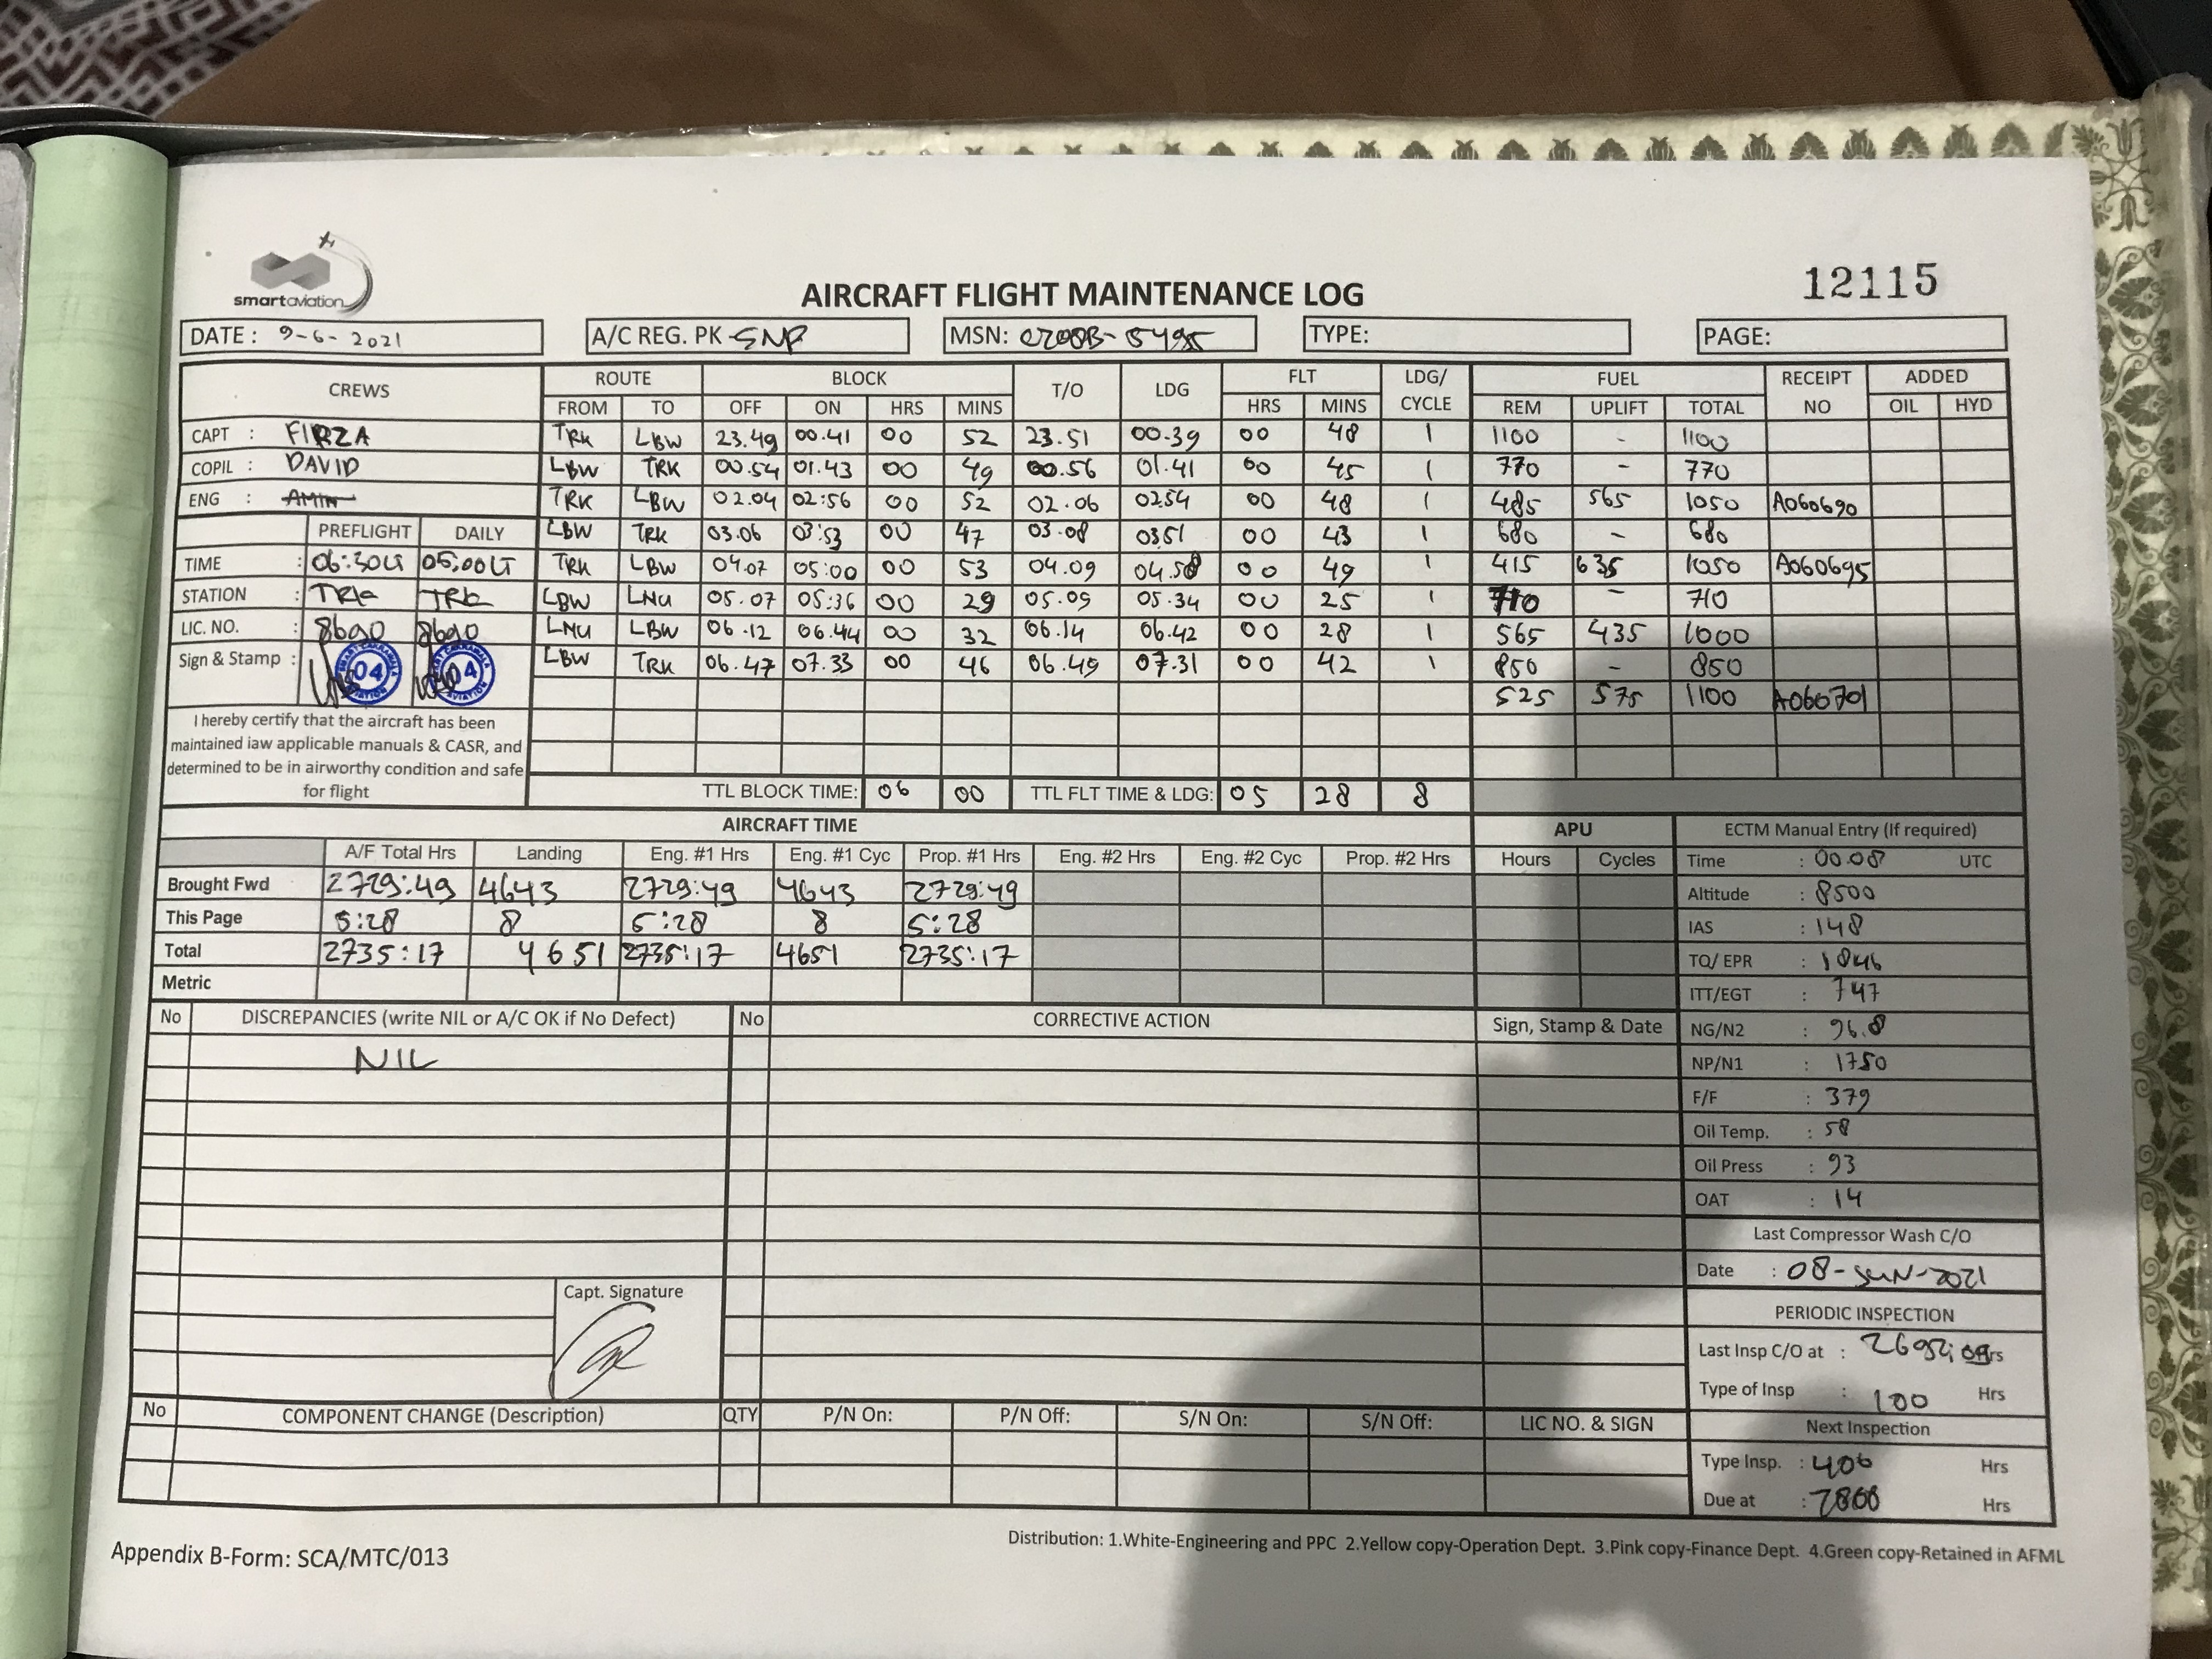 smartaviation
AIRCRAFT FLIGHT MAINTENANCE LOG
12115
DATE : 9-6-2021 A/C REG. PK-SNP MSN: C208B-5495 TYPE: PAGE:
CREWS ROUTE BLOCK T/O LDG FLT LDG/ FUEL RECEIPT ADDED
FROM TO OFF ON HRS MINS HRS MINS CYCLE REM UPLIFT TOTAL NO OIL HYD
CAPT : FIRZA TRK LBW 23.49 00.41 00 52 23.51 00.39 00 48 1 1100 - 1100
COPIL : DAVID LBW TRK 00.54 01.43 00 49 00.56 01.41 00 45 1 770 - 770
ENG : AMIN TRK LBW 02.04 02:56 00 52 02.06 0254 00 48 1 485 565 1050 A060690
PREFLIGHT DAILY LBW TRK 03.06 03:53 00 47 03.08 0351 00 43 1 680 - 680
TIME : 06:30LT 05:00LT TRK LBW 04.07 05:00 00 53 04.09 04.58 00 49 1 415 635 1050 A060695
STATION : TRK TRK LBW LNU 05.07 05:36 00 29 05.09 05.34 00 25 1 710 - 710
LIC. NO. : 8690 8690 LNU LBW 06.12 06.44 00 32 06.14 06.42 00 28 1 565 435 1000
Sign & Stamp : 04 04 LBW TRK 06.47 07.33 00 46 06.49 07.31 00 42 1 850 - 850
525 575 1100 A060701
I hereby certify that the aircraft has been
maintained iaw applicable manuals & CASR, and
determined to be in airworthy condition and safe
for flight
TTL BLOCK TIME: 06 00 TTL FLT TIME & LDG: 05 28 8
AIRCRAFT TIME APU ECTM Manual Entry (If required)
A/F Total Hrs Landing Eng. #1 Hrs Eng. #1 Cyc Prop. #1 Hrs Eng. #2 Hrs Eng. #2 Cyc Prop. #2 Hrs Hours Cycles Time : 00.08 UTC
Brought Fwd 2729:49 4643 2729:49 4643 2729:49 Altitude : 8500
This Page 5:28 8 5:28 8 5:28 IAS : 148
Total 2735:17 4651 2735:17 4651 2735:17 TQ/ EPR : 1846
Metric ITT/EGT : 747
No DISCREPANCIES (write NIL or A/C OK if No Defect) No CORRECTIVE ACTION Sign, Stamp & Date NG/N2 : 96.8
NIL NP/N1 : 1750
F/F : 379
Oil Temp. : 58
Oil Press : 93
OAT : 14
Last Compressor Wash C/O
Date : 08-JUN-2021
Capt. Signature
PERIODIC INSPECTION
Last Insp C/O at : Hrs
Type of Insp : 100 Hrs
No COMPONENT CHANGE (Description) QTY P/N On: P/N Off: S/N On: S/N Off: LIC NO. & SIGN Next Inspection
Type Insp. : 400 Hrs
Due at : 2800 Hrs
Distribution: 1.White-Engineering and PPC 2.Yellow copy-Operation Dept. 3.Pink copy-Finance Dept. 4.Green copy-Retained in AFML
Appendix B-Form: SCA/MTC/013